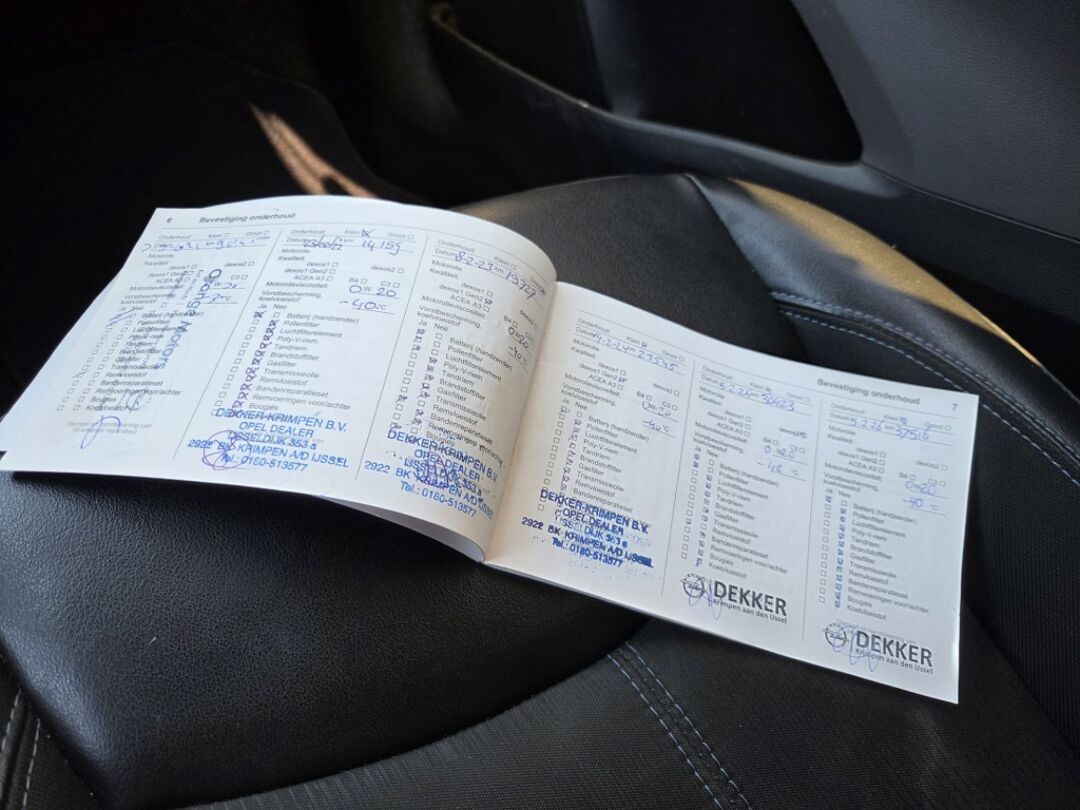 6 Bevestiging onderhoud
Onderhoud: Klein Groot
Motorolie
Kwaliteit:
dexos1 dexos2
dexos1 Gen2
ACEA A3 C3
Motorolieviscositeit: W-
Vorstbescherming,
koelvloeistof
Ja Nee
Batterij (handzender)
Pollenfilter
Luchtfilterelement
Poly-V-riem
Tandriem
Brandstoffilter
Gasfilter
Transmissieolie
Remvloeistof
Bandenreparatieset
Remvoeringen voor/achter
Bougies
Koelvloeistof
George Motors
Onderhoud: Klein Groot
Datum km 14159
Motorolie
Kwaliteit:
dexos1 dexos2
dexos1 Gen2
ACEA A3 B4 C3
Motorolieviscositeit: 0 W- 20
Vorstbescherming,
koelvloeistof -40 °C
Ja Nee
Batterij (handzender)
Pollenfilter
Luchtfilterelement
Poly-V-riem
Tandriem
Brandstoffilter
Gasfilter
Transmissieolie
Remvloeistof
Bandenreparatieset
Remvoeringen voor/achter
Bougies
DEKKER-KRIMPEN B.V.
OPEL DEALER
IJSSELDIJK 353 a
2922 BK KRIMPEN A/D IJSSEL
Tel.: 0180-513577
Onderhoud: Klein Groot
Datum 8-2-23 km
Motorolie
Kwaliteit:
dexos1 dexos2
dexos1 Gen2
ACEA A3 B4 C3
Motorolieviscositeit: 0 W- 20
Vorstbescherming,
koelvloeistof -40 °C
Ja Nee
Batterij (handzender)
Pollenfilter
Luchtfilterelement
Poly-V-riem
Tandriem
Brandstoffilter
Gasfilter
Transmissieolie
Remvloeistof
Bandenreparatieset
Remvoeringen voor/achter
Bougies
DEKKER-KRIMPEN B.V.
OPEL DEALER
IJSSELDIJK 353 a
2922 BK KRIMPEN A/D IJSSEL
Tel.: 0180-513577
Bevestiging onderhoud 7
Onderhoud: Klein Groot
Datum km
Motorolie
Kwaliteit:
dexos1 dexos2
dexos1 Gen2
ACEA A3 B4 C3
Motorolieviscositeit: 0 W- 20
Vorstbescherming,
koelvloeistof -40 °C
Ja Nee
Batterij (handzender)
Pollenfilter
Luchtfilterelement
Poly-V-riem
Tandriem
Brandstoffilter
Gasfilter
Transmissieolie
Remvloeistof
Bandenreparatieset
DEKKER-KRIMPEN B.V.
OPEL DEALER
IJSSELDIJK 353 a
2922 BK KRIMPEN A/D IJSSEL
Tel.: 0180-513577
Onderhoud: Klein Groot
Datum km
Motorolie
Kwaliteit:
dexos1 dexos2
dexos1 Gen2
ACEA A3 B4 C3
Motorolieviscositeit: 0 W- 20
Vorstbescherming,
koelvloeistof -40 °C
Ja Nee
Batterij (handzender)
Pollenfilter
Luchtfilterelement
Poly-V-riem
Tandriem
Brandstoffilter
Gasfilter
Transmissieolie
Remvloeistof
Bandenreparatieset
Remvoeringen voor/achter
Bougies
Koelvloeistof
DEKKER
Krimpen aan den IJssel
Onderhoud: Klein Groot
Datum 5-2-26 km 37516
Motorolie
Kwaliteit:
dexos1 dexos2
dexos1 Gen2
ACEA A3 B4 C3
Motorolieviscositeit: 0 W- 20
Vorstbescherming,
koelvloeistof -40 °C
Ja Nee
Batterij (handzender)
Pollenfilter
Luchtfilterelement
Poly-V-riem
Tandriem
Brandstoffilter
Gasfilter
Transmissieolie
Remvloeistof
Bandenreparatieset
Remvoeringen voor/achter
Bougies
Koelvloeistof
DEKKER
Krimpen aan den IJssel